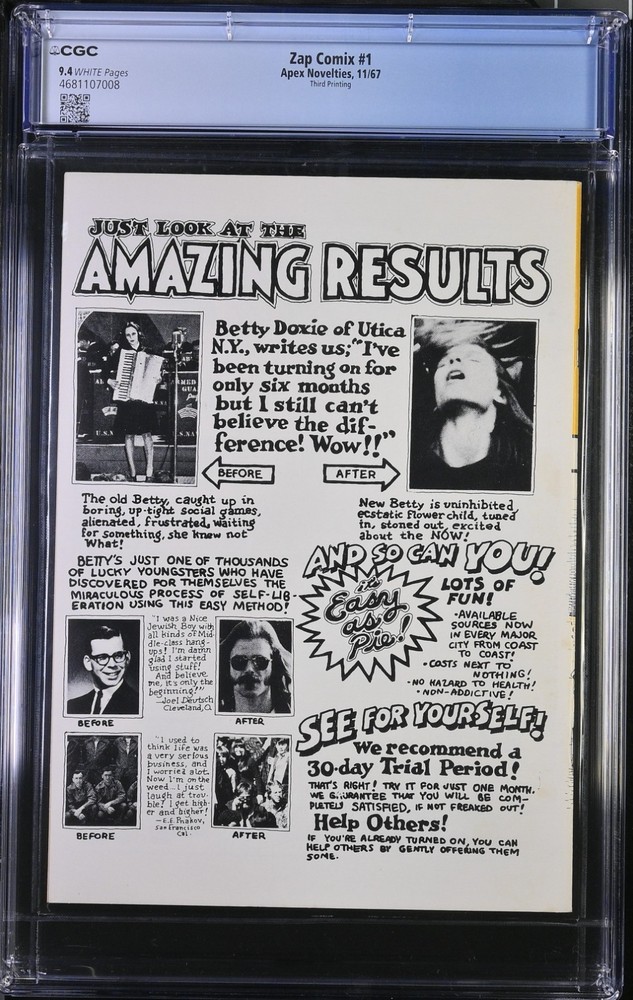 CGC
9.4 WHITE Pages
4681107008
Zap Comix #1
Apex Novelties, 11/67
Third Printing
JUST LOOK AT THE
AMAZING RESULTS
Betty Doxie of Utica
N.Y., writes us; "I've
been turning on for
only six months
but I still can't
believe the dif-
ference! Wow!!"
BEFORE
AFTER
The old Betty, caught up in
boring, up-tight social games,
alienated, frustrated, waiting
for something, she knew not
What!
New Betty is uninhibited,
ecstatic flower child, tuned
in, stoned out, excited
about the NOW!
BETTY'S JUST ONE OF THOUSANDS
OF LUCKY YOUNGSTERS WHO HAVE
DISCOVERED FOR THEMSELVES THE
MIRACULOUS PROCESS OF SELF-LIB-
ERATION USING THIS EASY METHOD!
AND SO CAN YOU!
it's
Easy
as
Pie!
LOTS OF
FUN!
·AVAILABLE
SOURCES NOW
IN EVERY MAJOR
CITY FROM COAST
TO COAST!
·COSTS NEXT TO
NOTHING!
·NO HAZARD TO HEALTH!
·NON-ADDICTIVE!
"I was a Nice
Jewish Boy with
all kinds of Mid-
dle-class hang-
ups! I'm damn
glad I started
using stuff!
And believe
me, it's only the
beginning!"
—Joel Deutsch
Cleveland, O.
BEFORE
AFTER
SEE FOR YOURSELF!
We recommend a
30-day Trial Period!
THAT'S RIGHT! TRY IT FOR JUST ONE MONTH.
WE GUARANTEE THAT YOU WILL BE COM-
PLETELY SATISFIED, IF NOT FREAKED OUT!
Help Others!
IF YOU'RE ALREADY TURNED ON, YOU CAN
HELP OTHERS BY GENTLY OFFERING THEM
SOME.
"I used to
think life was
a very serious
business, and
I worried alot.
Now I'm on the
weed...I just
laugh at trou-
ble! I get high-
er and higher!
—E.E.
San Francisco
Cal.
BEFORE
AFTER